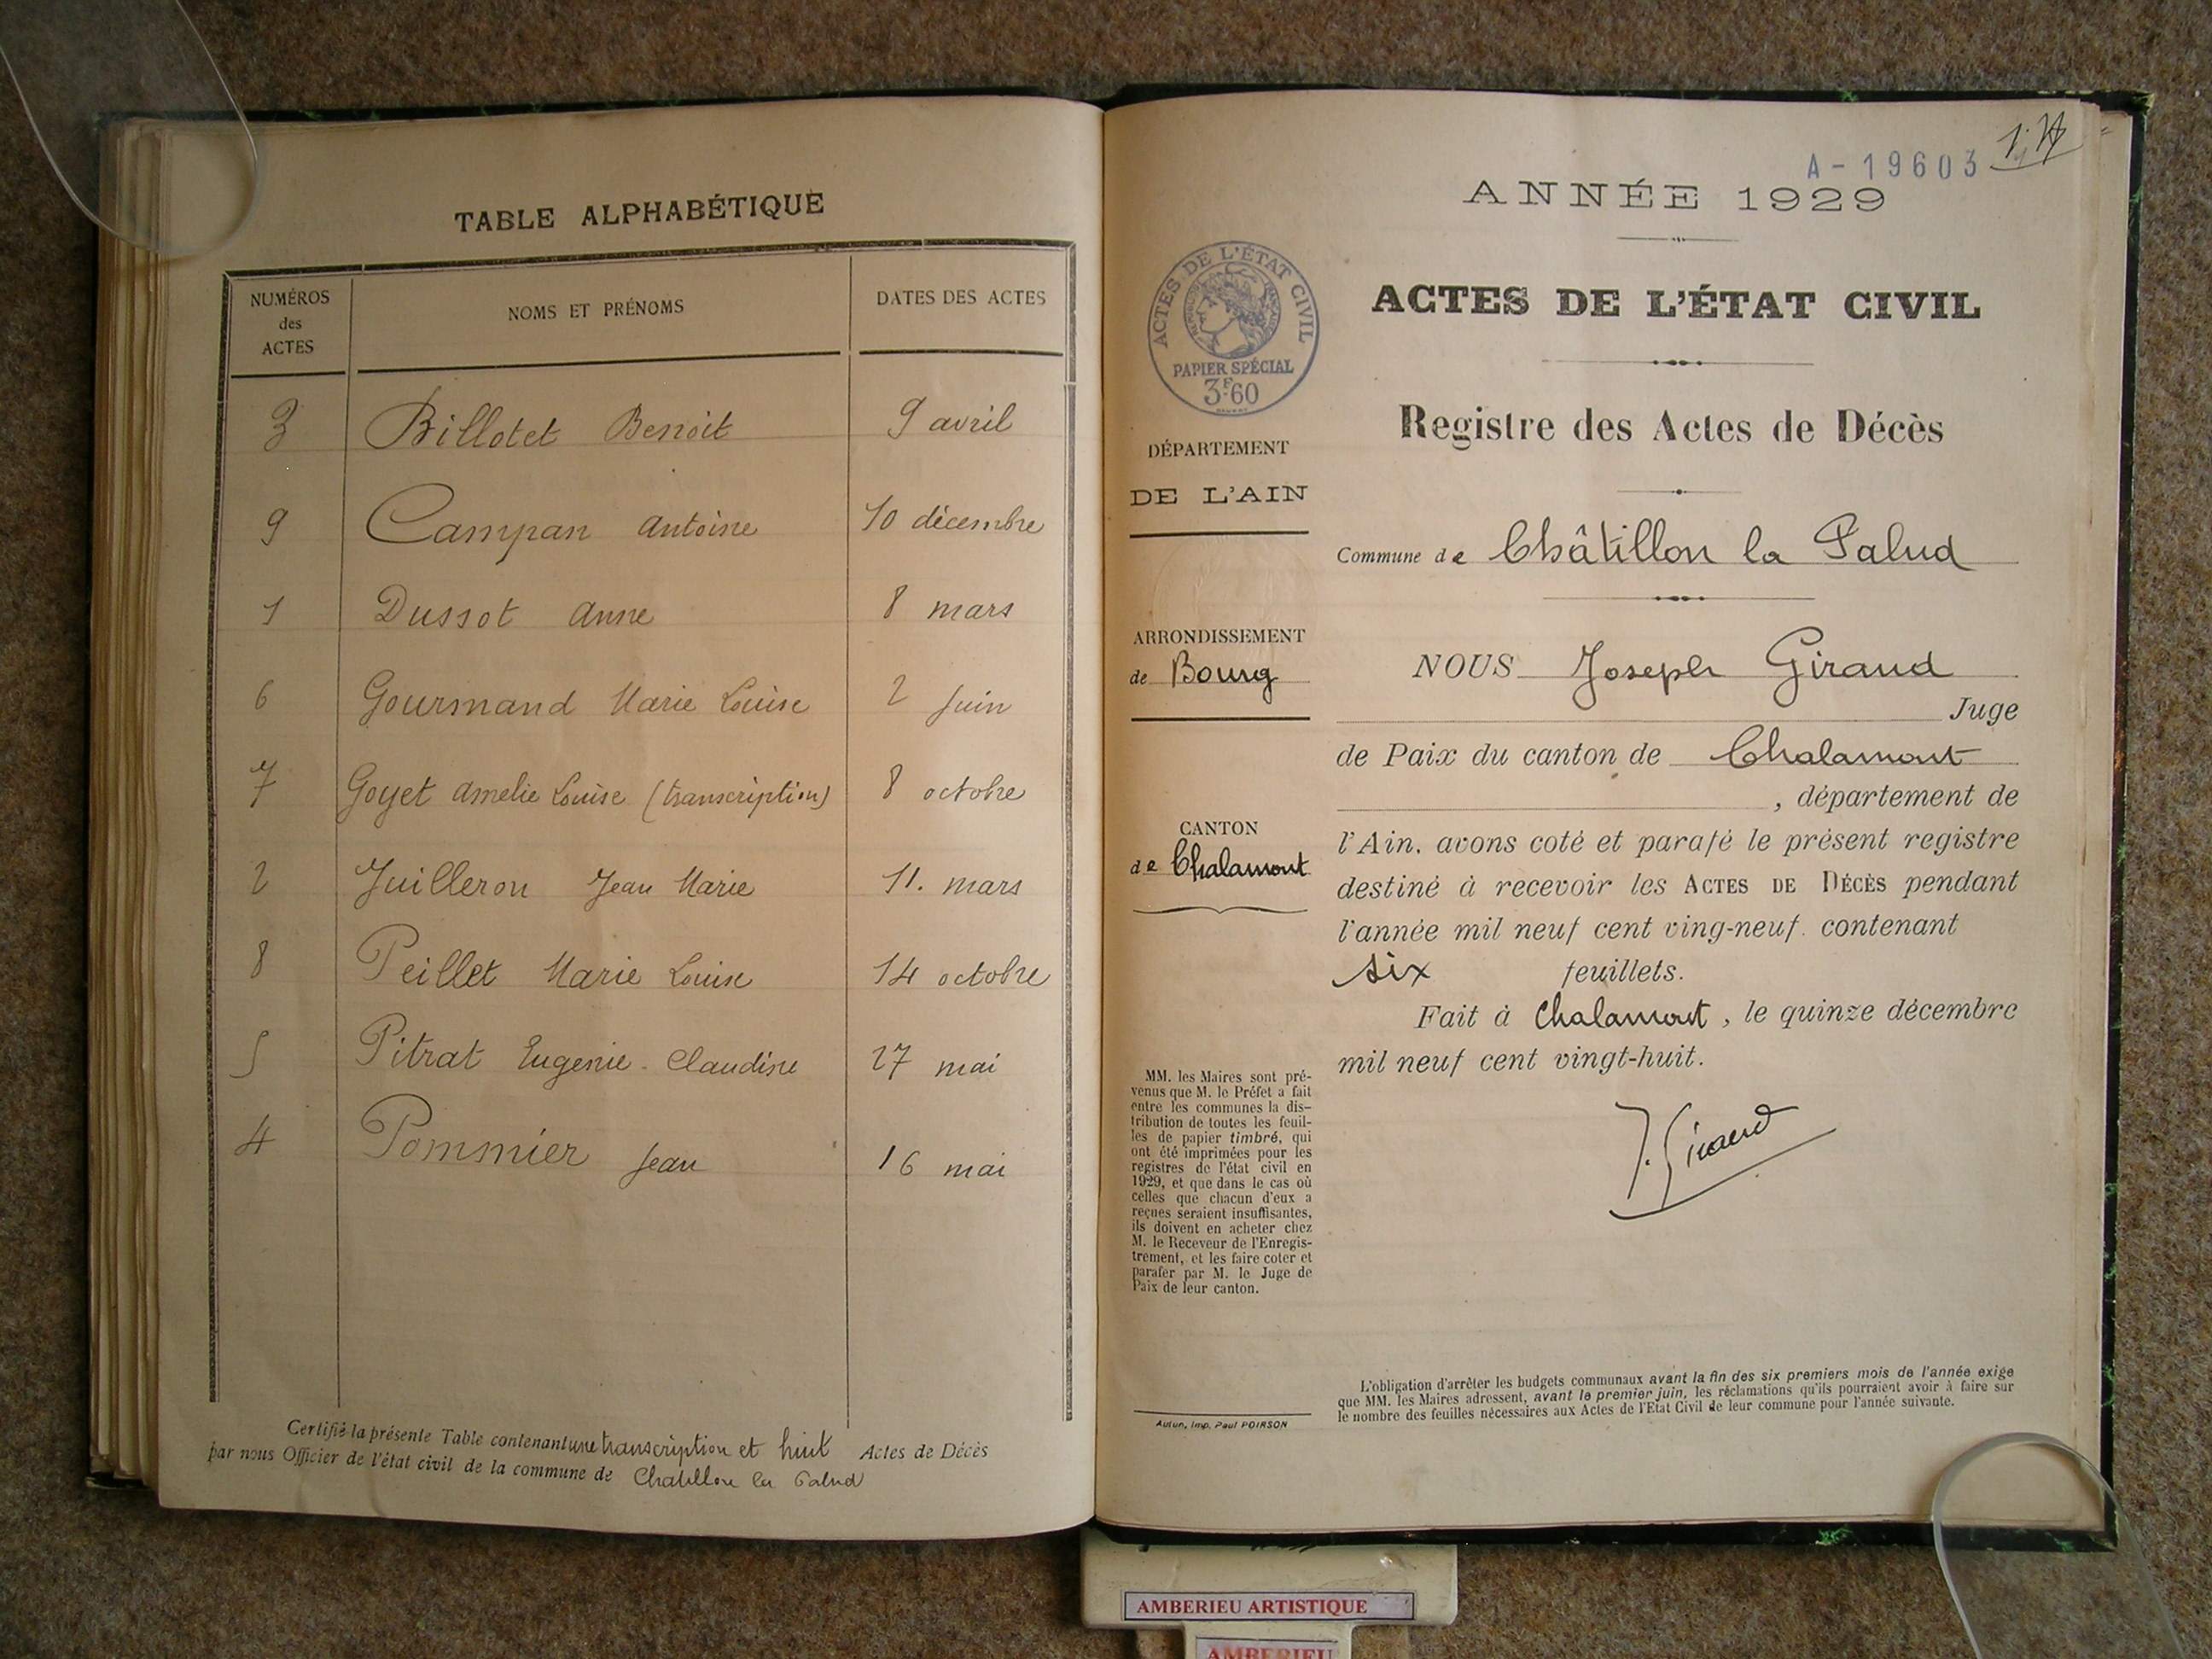 TABLE ALPHABÉTIQUE
NUMÉROS
des
ACTES
NOMS ET PRÉNOMS
DATES DES ACTES
3 Billotet Benoit 9 avril
9 Campan Antoine 10 décembre
1 Dussot Anne 8 mars
6 Gourmand Marie Louise 2 Juin
7 Goyet Amelie Louise (transcription) 8 octobre
2 Juilleron Jean Marie 11. mars
8 Peillet Marie Louise 14 octobre
5 Pitrat Eugenie - Claudine 27 mai
4 Pommier Jean 16 mai
Certifié la présente Table contenant une transcription et huit Actes de Décès
par nous Officier de l'état civil de la commune de Chatillon la Palud
A-19603
ANNÉE 1929
ACTES DE L'ÉTAT CIVIL
PAPIER SPÉCIAL
3F60
ACTES DE L'ÉTAT CIVIL
Registre des Actes de Décès
DÉPARTEMENT
DE L'AIN
Commune de Châtillon la Palud
ARRONDISSEMENT
de Bourg
CANTON
de Chalamont
NOUS Joseph Giraud
Juge
de Paix du canton de Chalamont
, département de
l'Ain. avons coté et parafé le présent registre
destiné à recevoir les ACTES DE DÉCÈS pendant
l'année mil neuf cent ving-neuf. contenant
six feuillets.
Fait à Chalamont, le quinze décembre
mil neuf cent vingt-huit.
J. Giraud
MM. les Maires sont pré-
venus que M. le Préfet a fait
entre les communes la dis-
tribution de toutes les feuil-
les de papier timbré, qui
ont été imprimées pour les
registres de l'état civil en
1929, et que dans le cas où
celles que chacun d'eux a
reçues seraient insuffisantes,
ils doivent en acheter chez
M. le Receveur de l'Enregis-
trement, et les faire coter et
parafer par M. le Juge de
Paix de leur canton.
Autun, Imp. Paul POIRSON
L'obligation d'arrêter les budgets communaux avant la fin des six premiers mois de l'année exige
que MM. les Maires adressent, avant le premier juin, les réclamations qu'ils pourraient avoir à faire sur
le nombre des feuilles nécessaires aux Actes de l'Etat Civil de leur commune pour l'année suivante.
AMBERIEU ARTISTIQUE
AMBERIEU